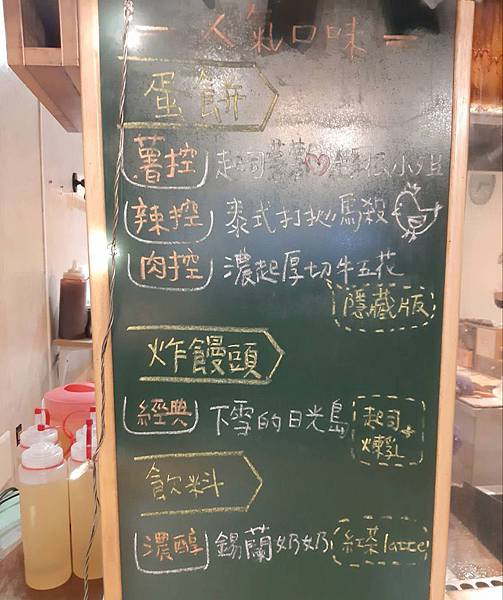 — 人氣口味 —
蛋餅
薯控 起司薯薯♡小姐
辣控 泰式打拋馬殺
肉控 濃起厚切牛五花
隱藏版
炸饅頭
經典 下雪的日光島 起司+煉乳
飲料
濃醇 錫蘭奶奶 紅茶latte